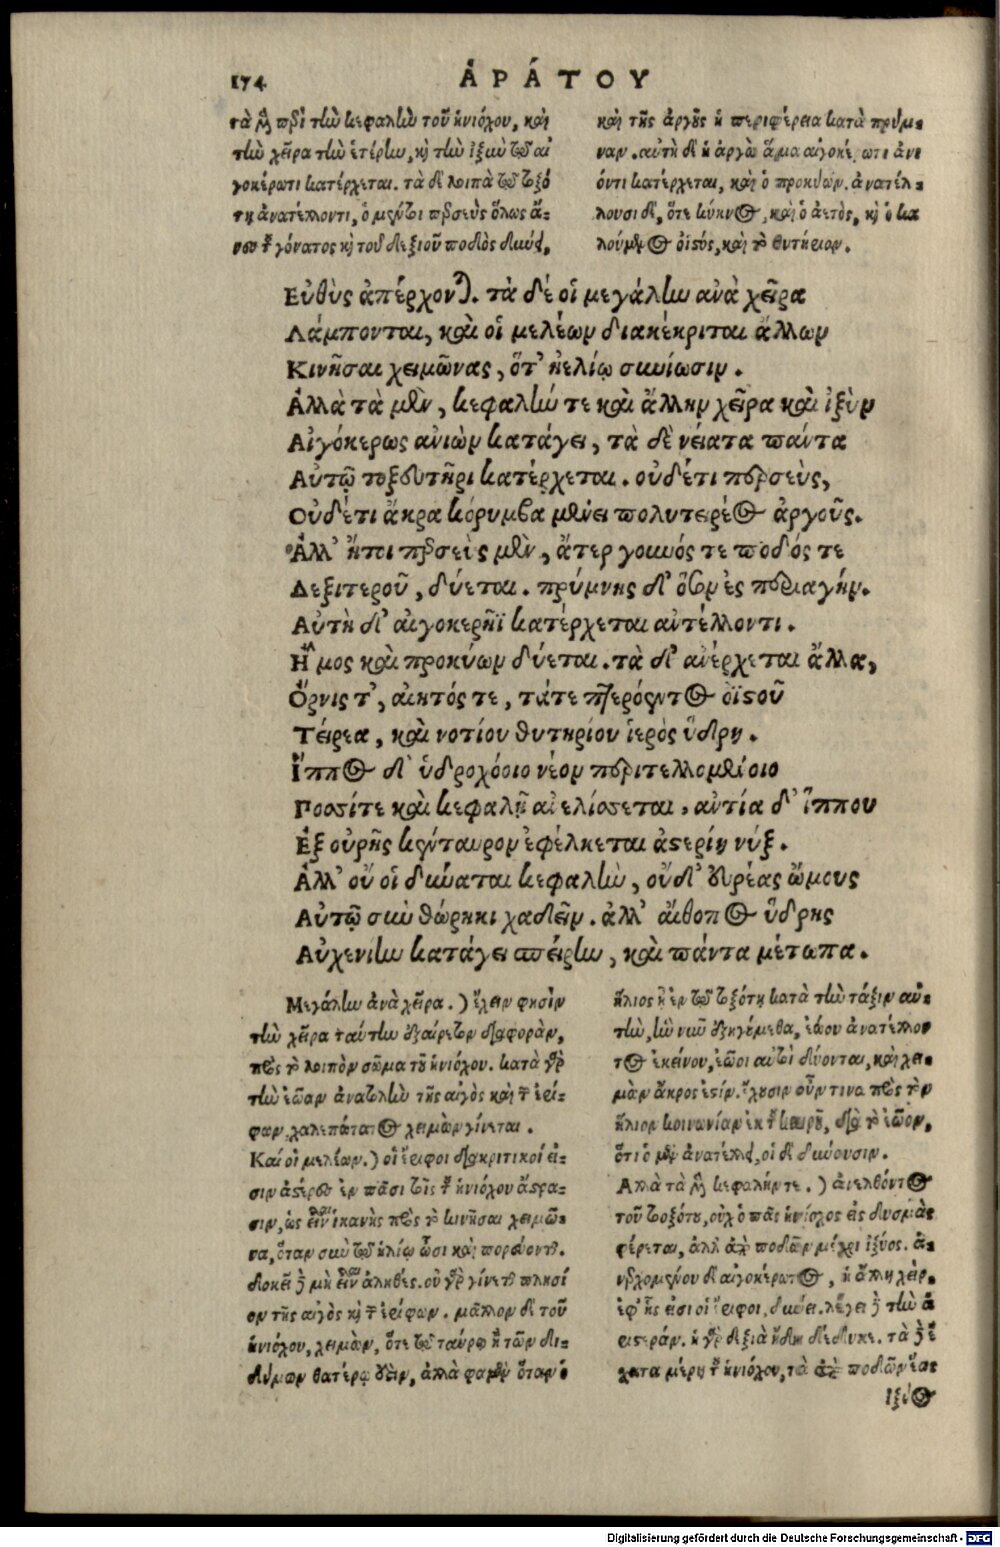 174
ἈΡΆΤΟΥ
τὰ περὶ τὴν κεφαλὴν τοῦ ἡνιόχου, καὶ
τὴν χεῖρα τὴν ἑτέρην, κὴ τὴν ἰξὺν τῷ αἰ
γοκέρωτι κατέρχεται. τὰ δὲ λοιπὰ τῷ τοξό
τη ἀνατέλλοντι, ὁ μέντοι περσεὺς ὅλως ἄ-
νευ τ γόνατος κὴ τοῦ δεξιοῦ ποδὸς δύνει,
καὶ τῆς ἀργοῦς ἡ περιφέρεια κατὰ πρύμ-
ναν. αὐτὴ δὲ ἡ ἀργὼ ἅμα αἰγοκέρωτι ἀνι
όντι κατέρχεται, καὶ ὁ προκύων. ἀνατέλ-
λουσι δὲ, ὅτε κύκνος, καὶ ὁ ἀετὸς, κὴ ὁ κα
λούμενος ὀϊστὸς, καὶ τὸ θυτήριον.
Εὐθὺς ἀπέρχονται. τὰ δέ οἱ μεγάλην ἀνὰ χεῖρα
Λάμπονται, καὶ οἱ μελέων διακέκριται ἄλλων
Κινῆσαι χειμῶνας, ὅτ' ἠελίῳ συνίωσιν.
Ἀλλὰ τὰ μὲν, κεφαλήν τε καὶ ἄλλην χεῖρα καὶ ἰξὺν
Αἰγόκερως ἀνιὼν κατάγει, τὰ δὲ νείατα πάντα
Αὐτῷ τοξευτῆρι κατέρχεται. οὐδ' έτι περσεὺς,
Οὐδ' έτι ἄκρα κόρυμβα μένει πολυτειρέος ἀργοῦς.
Ἀλλ' ἤτοι περσεὺς μὲν, ἄτερ γουνός τε ποδός τε
Δεξιτεροῦ, δύεται. πρύμνης δ' ὅσον ἐς περιαγήν.
Αὐτὴ δ' αἰγοκερῆϊ κατέρχεται ἀντέλλοντι.
Ἦμος καὶ προκύων δύεται. τὰ δ' ἀνέρχεται ἄλλα,
Ὄρνις τ', αἰητός τε, τάτε πτερόεντος ὀϊστοῦ
Τείρεα, καὶ νοτίου θυτηρίου ἱερὸς ὕδρη.
Ἵππος δ' ὑδροχόοιο νέον περιτελλομένοιο
Ποσσίτε καὶ κεφαλῇ ἀνελίσσεται, ἀντία δ' ἵππου
Ἐξ οὐρῆς κένταυρον ἐφέλκεται ἀστερίη νύξ.
Ἀλλ' οὔ οἱ δύναται κεφαλὴν, οὐδ' εὐρέας ὤμους
Αὐτῷ σὺν θώρηκι χαδεῖν. ἀλλ' αἴθοπος ὕδρης
Αὐχενίην κατάγει σπείρην, καὶ πάντα μέτωπα.
Μεγάλην ἀνὰ χεῖρα.) ἔχειν φησὶν
τὴν χεῖρα ταύτην ἐξαίρετον διαφορὰν,
πρὸς τὸ λοιπὸν σῶμα τοῦ ἡνιόχου. κατὰ γὰρ
τὴν ἑῴαν ἀνατολὴν τῆς αἰγὸς καὶ τ ἐρί-
φων, χαλεπώτατος χειμὼν γίνεται.
Καὶ οἱ μελέων.) οἱ ἔριφοι διακριτικοί εἰ-
σιν ἀστέρες ἐν πᾶσι τοῖς τ ἡνιόχου ἄστρα-
σιν, ὡς εἶναι ἱκανὴς πρὸς τὸ κινῆσαι χειμῶ-
να, ὅταν σὺν τῷ ἡλίῳ ὦσι καὶ πορεύονται.
δοκεῖ δὲ μὴ εἶναι ἀληθές. οὐ γὰρ γίνεται πλησί
ον τῆς αἰγὸς κὴ τ ἐρίφων. μᾶλλον δὲ τοῦ
ἡνιόχου, χειμὼν, ὅτε τῷ ταύρῳ ἢ τῶν δι-
δύμων θατέρῳ ἐστὶν, ἀλλὰ φαμὲν ὅταν ὁ
ἥλιος ᾖ ἐν τῷ τοξότῃ κατὰ τὴν τάξιν αὐ-
τὴν, ἣν νῦν ἐξηγέμεθα, ἑῷον ἀνατέλλον
τος ἐκείνου, ἑῷοι αὐτοὶ δύονται, καὶ χει-
μὼν ἄκρος ἐστίν. ἔχουσιν οὖν τινα πρὸς τὸν
ἥλιον κοινωνίαν ἐκ τ καιροῦ, διὰ τὸ ἑῷον,
ὅτι ὁ μὲν ἀνατέλλει, οἱ δὲ δύνουσιν.
Ἀλλὰ τὰ μὲν κεφαλήν τε.) ἀνελθόντος
τοῦ τοξότου, οὐχ ὁ πᾶς ἡνίοχος εἰς δυσμὰς
φέρεται, ἀλλ' ἀπὸ ποδῶν μέχρι ἰξύος. ἀ-
νερχομένου δὲ αἰγοκέρωτος, ἡ ἄλλη χεὶρ,
ἐφ' ἧς εἰσι οἱ ἔριφοι, δύνει. λέγει δὲ τὴν ἀ
ριστεράν. ἡ γὰρ δεξιὰ ἤδη δέδυκε. τὰ δὲ ἔ
χατα μέρη τ ἡνιόχου, τὰ ἀπὸ ποδῶν ἕως
ἰξύος